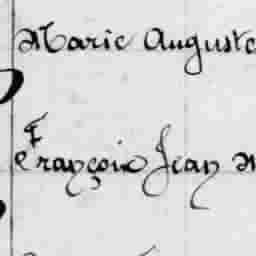 Marie Auguste
François Jean